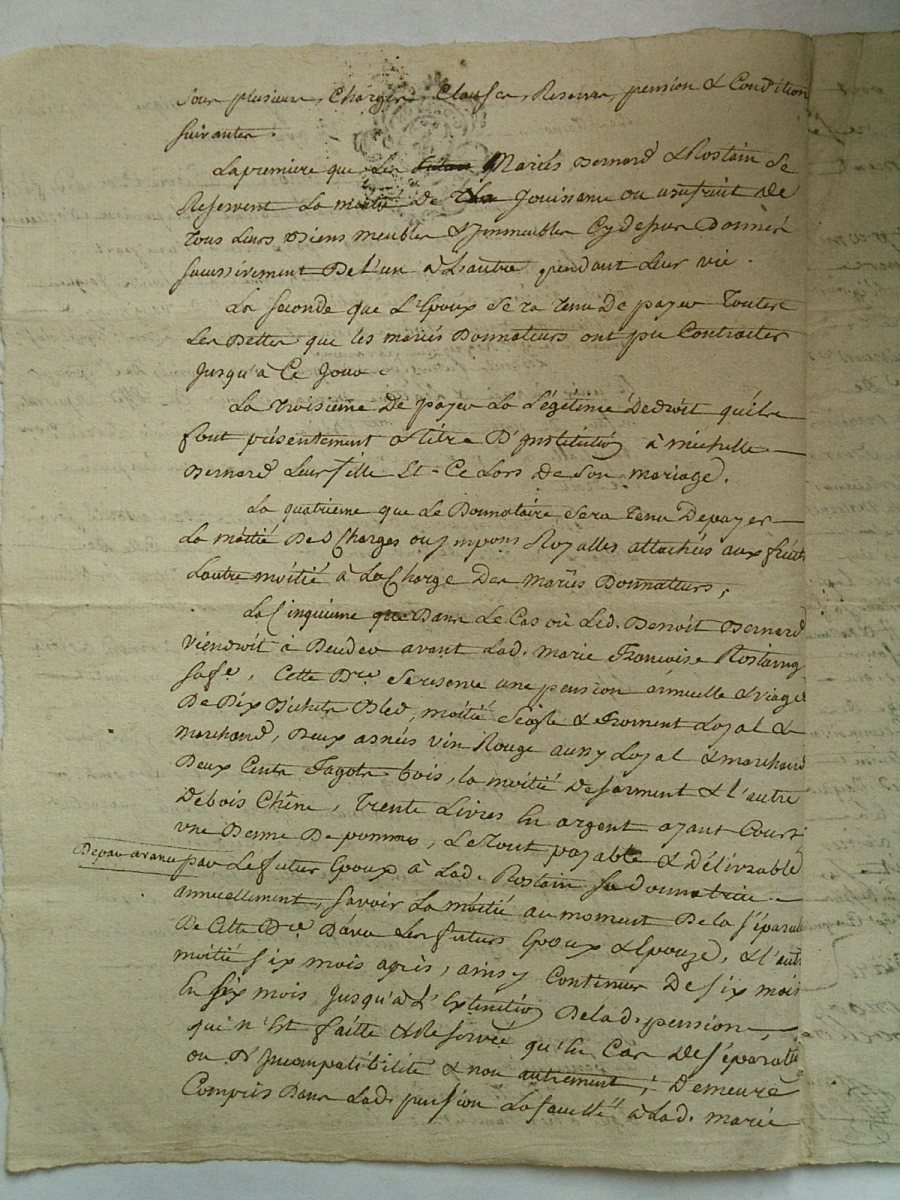 sous plusieurs Charges, Clauses, Reserves, pension & Condition
suivantes.
La premiere que Les Mariés Bernard & Rostain Se
Reservent La moitié De La Jouissance ou usufruit De
tous Leurs Biens meubles & Jmmeubles Cy dessus Donnés
successivement De L'un à L'autre pendant Leur vie.
La seconde que L'Epoux Sera tenu De payer Toutes
Les Dettes que les mariés Donnateurs ont pu Contracter
Jusqu'à Ce Jour.
La troisieme De payer La Légitime De droit qu'ils
font présentement à titre D'Jnstitution à michelle
Bernard Leur fille Et Ce Lors De Son mariage.
La quatrieme que Le Donnataire Sera tenu De payer
La moitié Des Charges ou Jmpons Royalles attachés aux fruits
L'autre moitié à La Charge Des mariés Donnateurs,
La Cinquieme que Dans Le Cas où Led. Benoit Bernard
Viendroit à Deceder avant Lad. marie Françoise Rostaing
sa fe, Cette Dre Se reserve une pension annuelle & viage
De Dix Bichets Bled, moitié Seigle & Froment Loyal &
marchand, Deux asnées vin Rouge aussy Loyal & marchand
Deux Cents Fagots bois, la moitié De sarment & L'autre
De bois Chêne, Trente Livres En argent ayant Cours
vne Benne De pommes, Le Tout payable & Délivrable
par Le futur Epoux à Lad. Rostain sa Donnatrice
annuellement, savoir La moitié au moment De la séparat
De Cette Dre D'avec Les futurs Epoux & Epouze, & L'aut
moitié six mois après, ainsy Continuer De six mois
En six mois Jusqu'à L'Extinction De lad. pension
qui n'Est faitte & Reservée qu'En Cas De séparation
ou D'Jncompatibilité & non autrement; Demeure
Compris Dans Lad. pension La faculté à Lad. marie